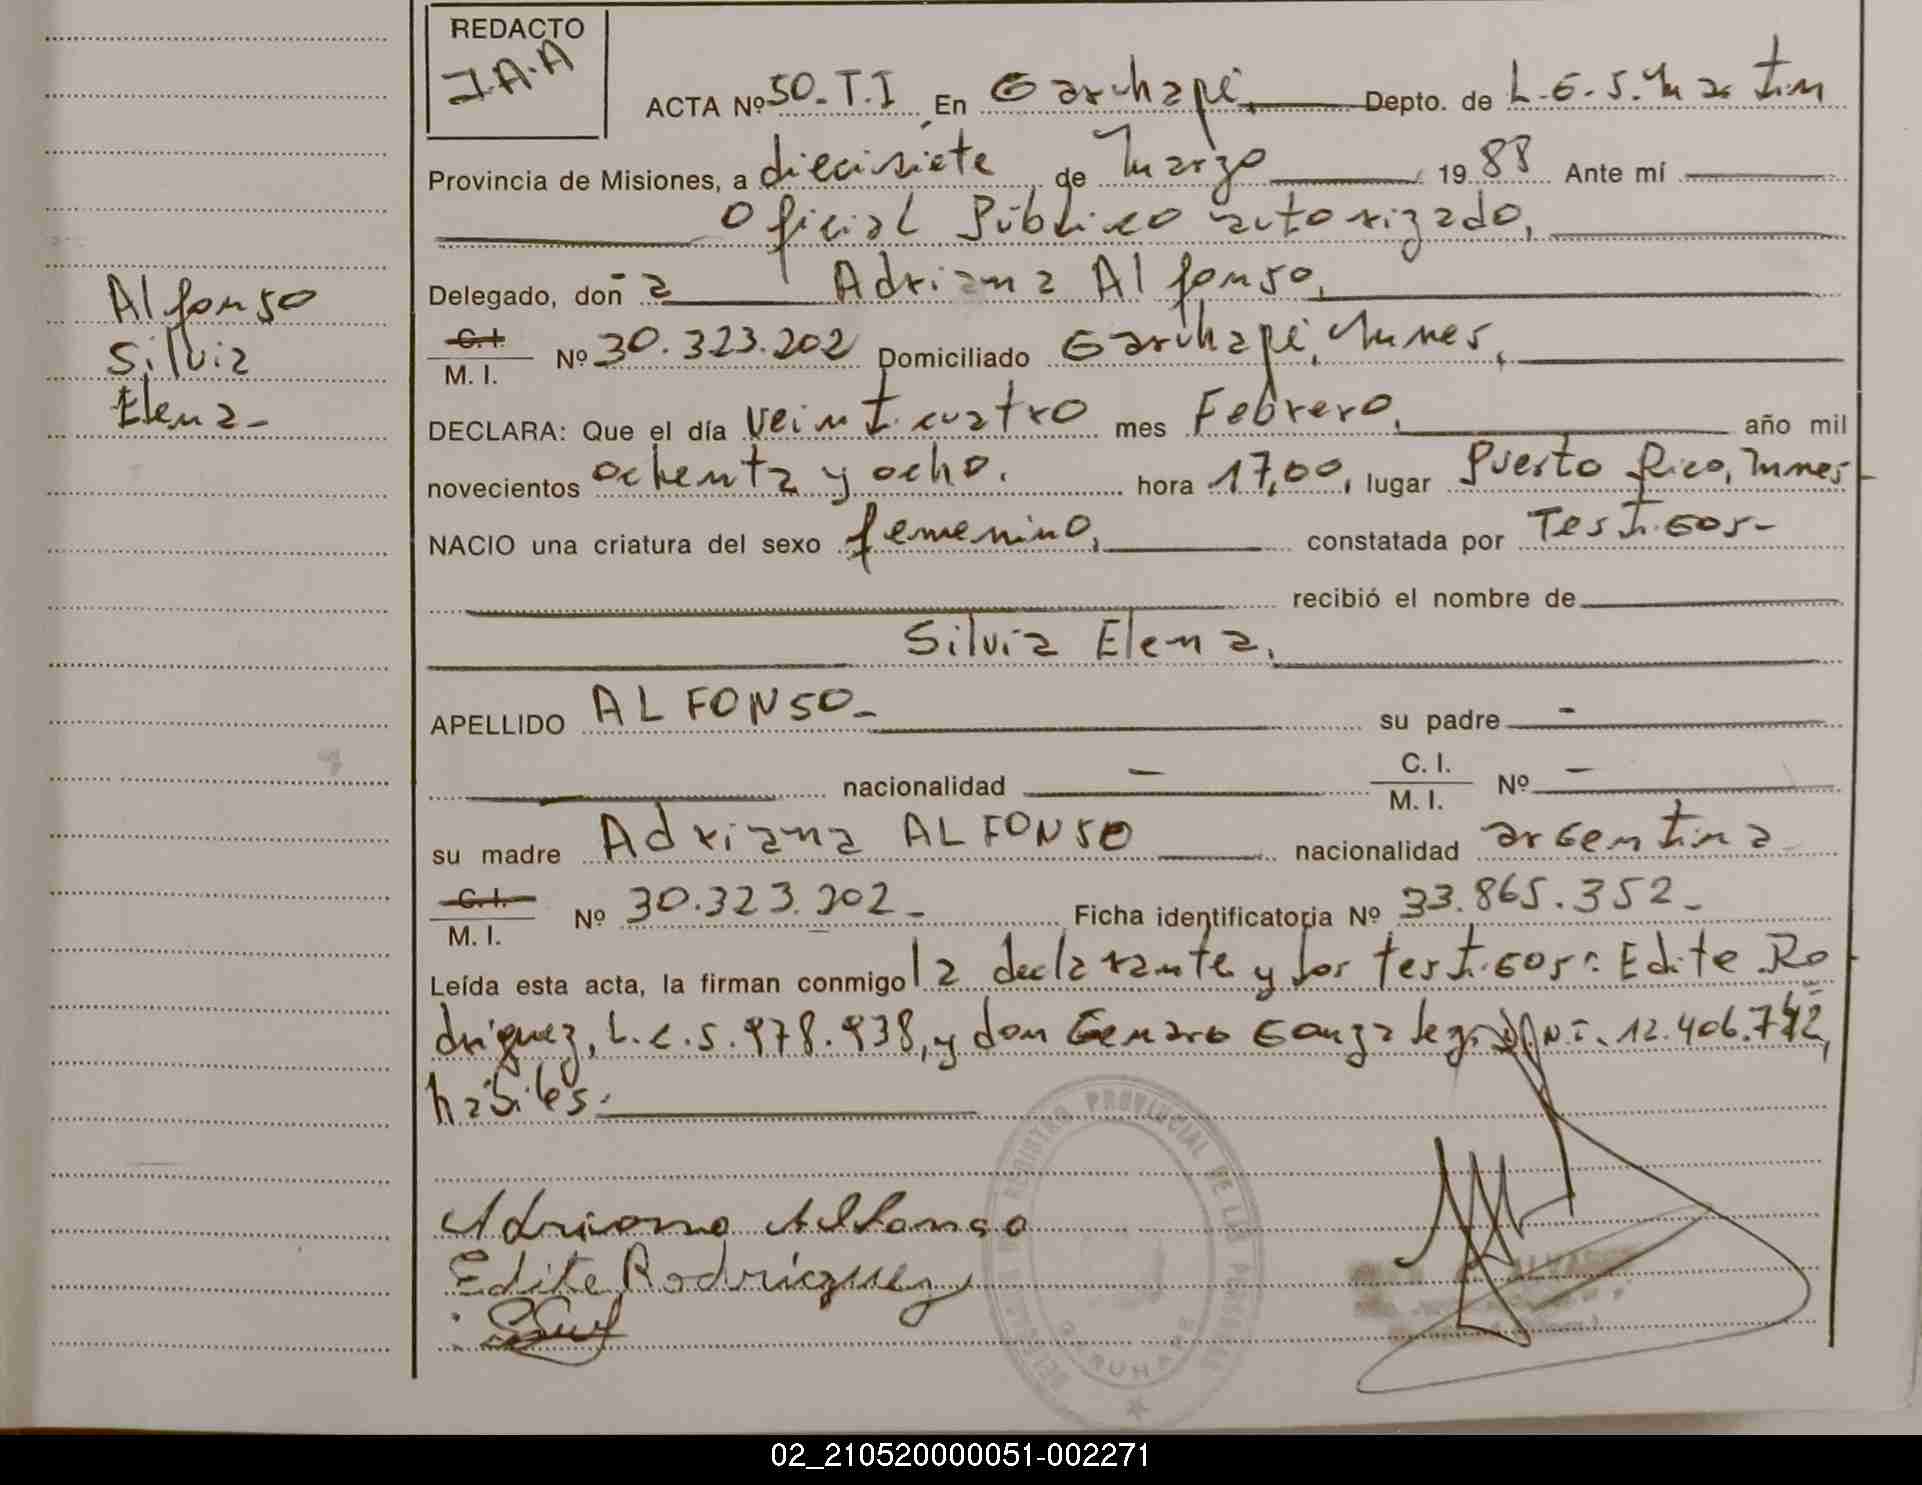 REDACTO
J.A.A
ACTA Nº 50-T.I En Garuhapé, Depto. de L.G.S.Martin
Provincia de Misiones, a diecisiete de Marzo 19 88 Ante mí
Oficial Público autorizado,
Delegado, doña Adriana Alfonso,
C.I. M. I. Nº 30.323.202 Domiciliado Garuhapé, Mnes,
DECLARA: Que el día veinticuatro mes Febrero, año mil
novecientos ochenta y ocho. hora 17,00, lugar Puerto Rico, Mnes-
NACIO una criatura del sexo femenino, constatada por Testigos-
recibió el nombre de
Silvia Elena,
APELLIDO ALFONSO- su padre -
nacionalidad - C. I. M. I. Nº -
su madre Adriana ALFONSO nacionalidad argentina
C.I. M. I. Nº 30.323.202- Ficha identificatoria Nº 33.865.352-
Leída esta acta, la firman conmigo la declarante y los testigos: Edite Ro
driguez, L.C.5.978.938, y don Genaro Gonzalez, D.N.I. 12.406.742,
hábiles.
Alfonso
Silvia
Elena-
Adriana Alfonso
Edite Rodriguez
REGISTRO PROVINCIAL DE LAS PERSONAS
GARUHAPE
02_210520000051-002271